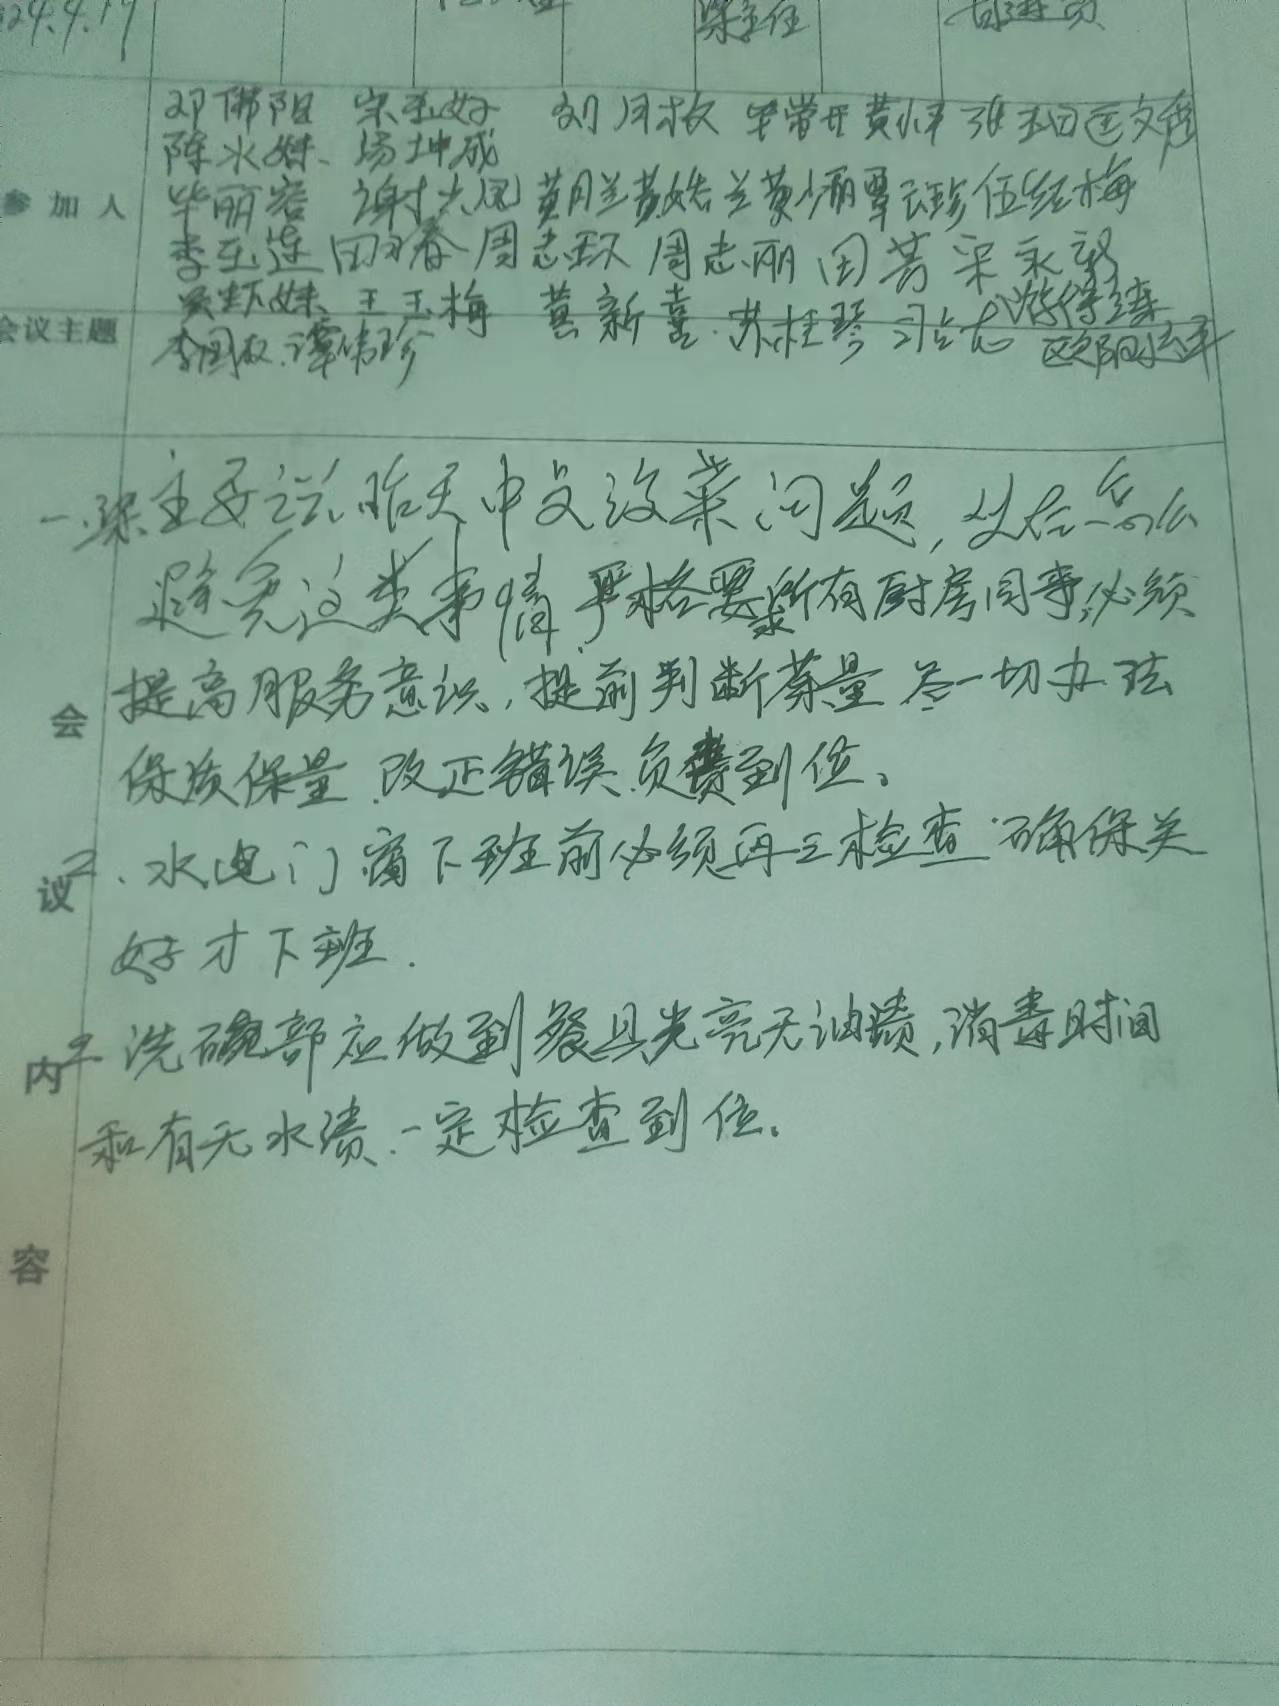 24.4.17
梁主任
参加人
邓佛阳 宋玉好 刘月枚
陈水妹、汤坤成
毕丽容 谢六凤 黄月兰 黄姑兰 黄少丽 覃云珍 伍红梅
李玉莲 田春 周志、周志丽 田芳 宋永毅
吴虾妹、王玉梅 黄新喜、苏桂琴
会议主题
李国、谭伟珍 欧阳
会议内容
一、梁主要说昨天中文没菜问题,以后怎么
避免这类事情,严格要求所有厨房同事,必须
提高服务意识,提前判断菜量 尽一切办法
保质保量、改正错误、负责到位。
2、水电门窗下班前必须再三检查 确保关
好才下班.
3 洗碗部应做到餐具光亮无油渍,消毒时间
和有无水渍、一定检查到位。